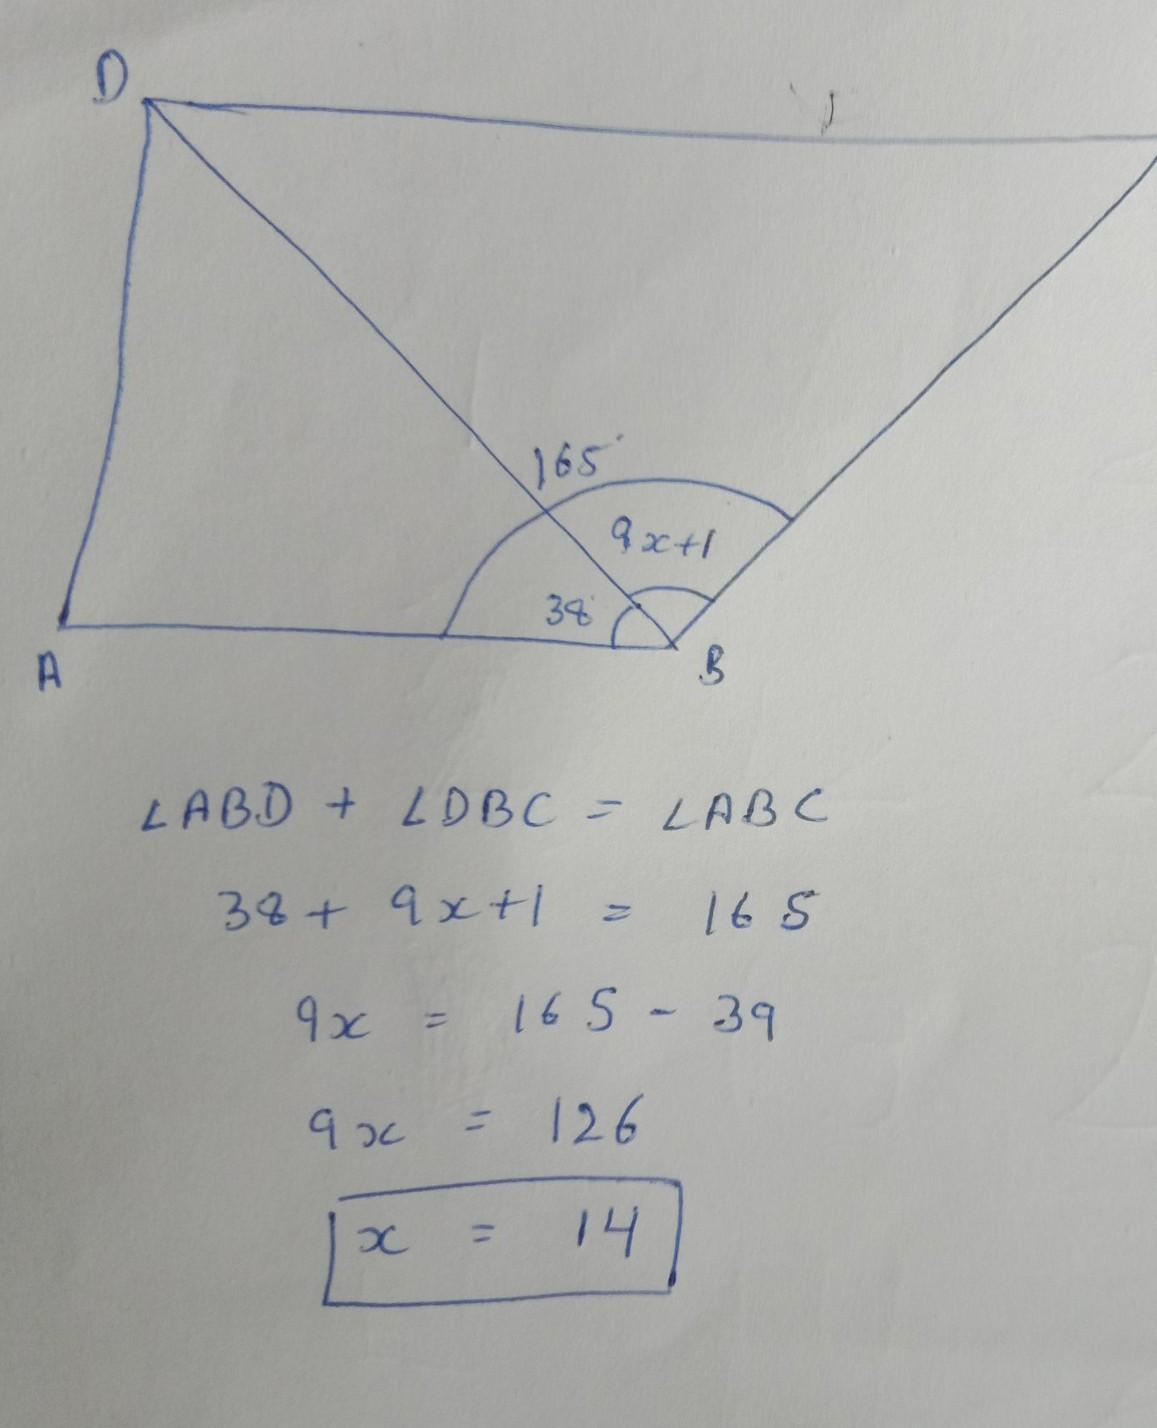 D
165°
9x+1
38°
A
B
∠ABD + ∠DBC = ∠ABC
38 + 9x+1 = 165
9x = 165 - 39
9x = 126
x = 14